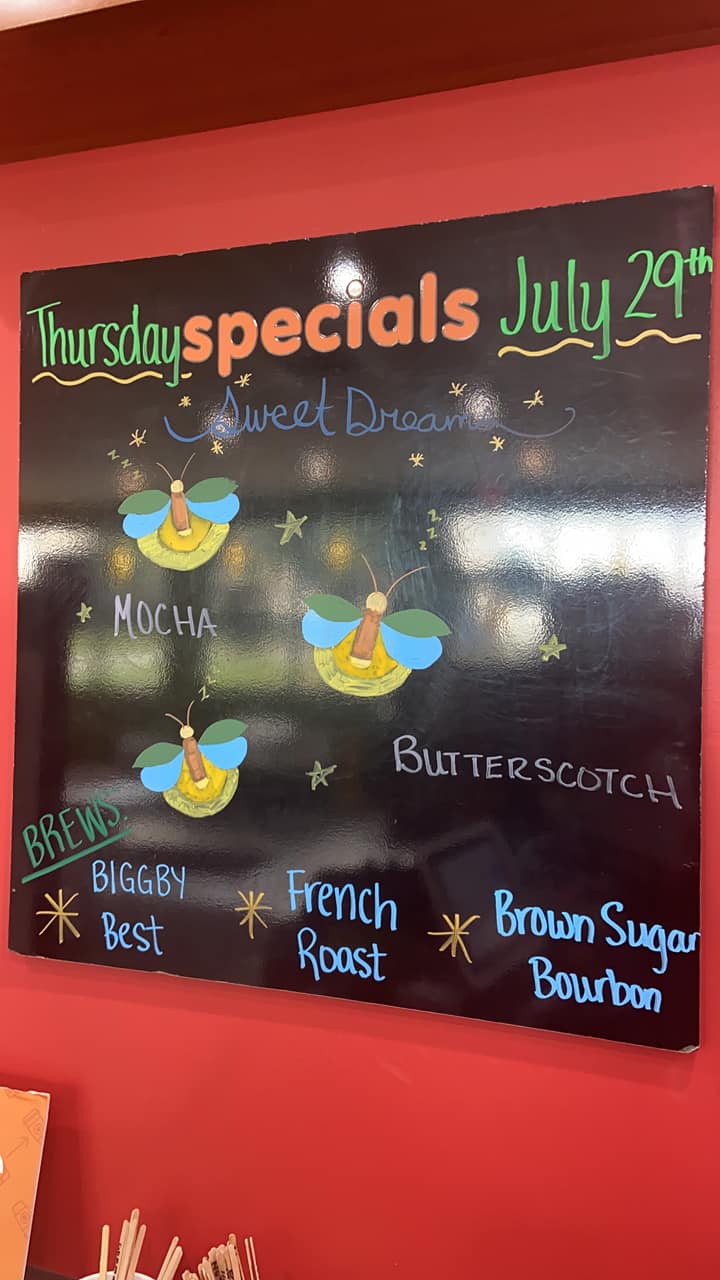 Thursday specials July 29th
Sweet Dreams
z z z
z z z
MOCHA
z z
BUTTERSCOTCH
BREWS:
BIGGBY
Best
French
Roast
Brown Sugar
Bourbon